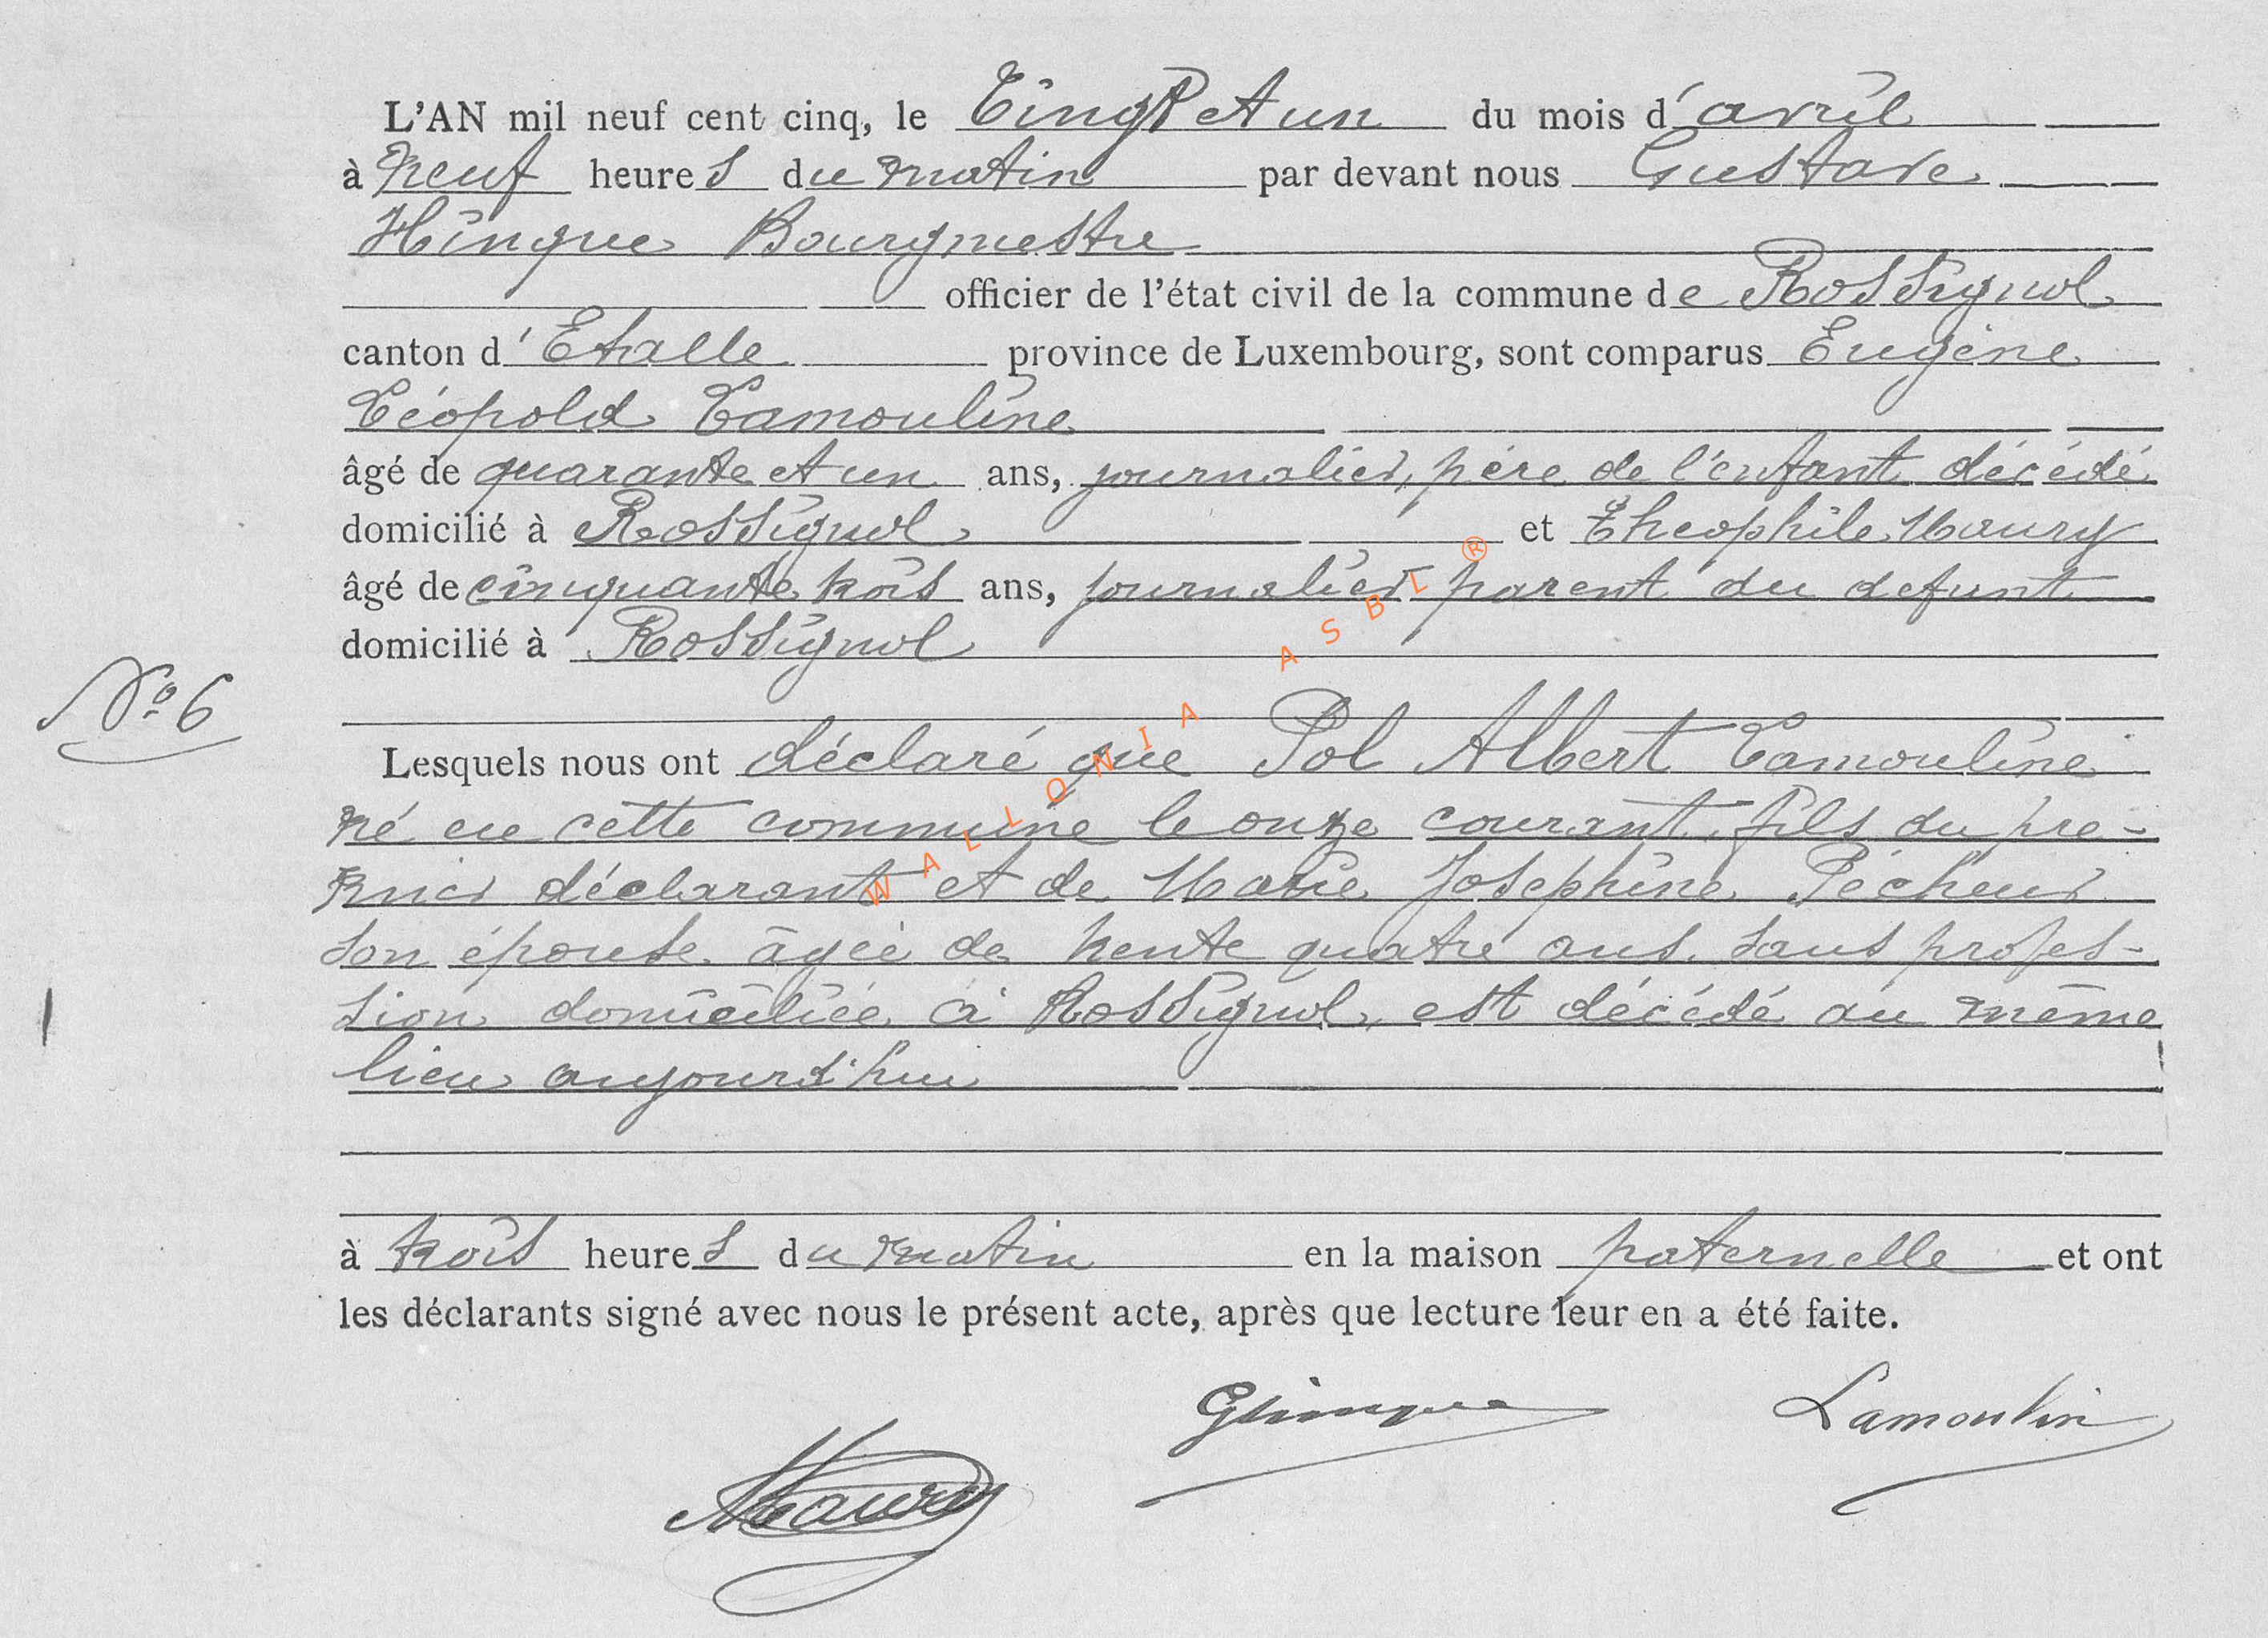 L'AN mil neuf cent cinq, le Vingt et un du mois d'avril
à neuf heures du matin par devant nous Gustave
Hinque Bourgmestre
officier de l'état civil de la commune de Rossignol
canton d'Etalle province de Luxembourg, sont comparus Eugène
Léopold Lamouline
âgé de quarante et un ans, journalier, père de l'enfant décédé
domicilié à Rossignol et Théophile Maury
âgé de cinquante trois ans, journalier parent du defunt
domicilié à Rossignol
N° 6
Lesquels nous ont déclaré que Pol Albert Lamouline
né en cette commune le onze courant, fils du pre-
mier déclarant et de Marie Joséphine Pécheur
son épouse âgée de trente quatre ans, sans profes-
sion domiciliée à Rossignol, est décédé au même
lieu aujourd'hui
à trois heures du matin en la maison paternelle et ont
les déclarants signé avec nous le présent acte, après que lecture leur en a été faite.
GHinque Lamoulin
Maury
WALLONIA ASBL ®